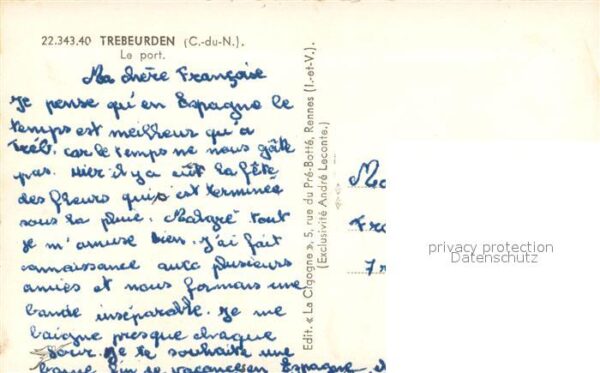 22.343.40 TREBEURDEN (C.-du-N.).
Le port.
Ma chère Françoise
Je pense qu'en Espagne le
temps est meilleur qu'à
Tréb. car le temps ne nous gâte
pas. Hier il y a eût la fête
des fleurs qui s'est terminée
sous la pluie. Malgré tout
je m'amuse bien. J'ai fait
connaissance avec plusieurs
amies et nous formons une
bande inséparable. Je me
baigne presque chaque
jour. Je te souhaite une
bonne fin de vacances en Espagne
Edit. « La Cigogne », 5, rue du Pré-Botté, Rennes (I.-et-V.).
(Exclusivité André Leconte.)
Ma
Fra
7 r
privacy protection
Datenschutz